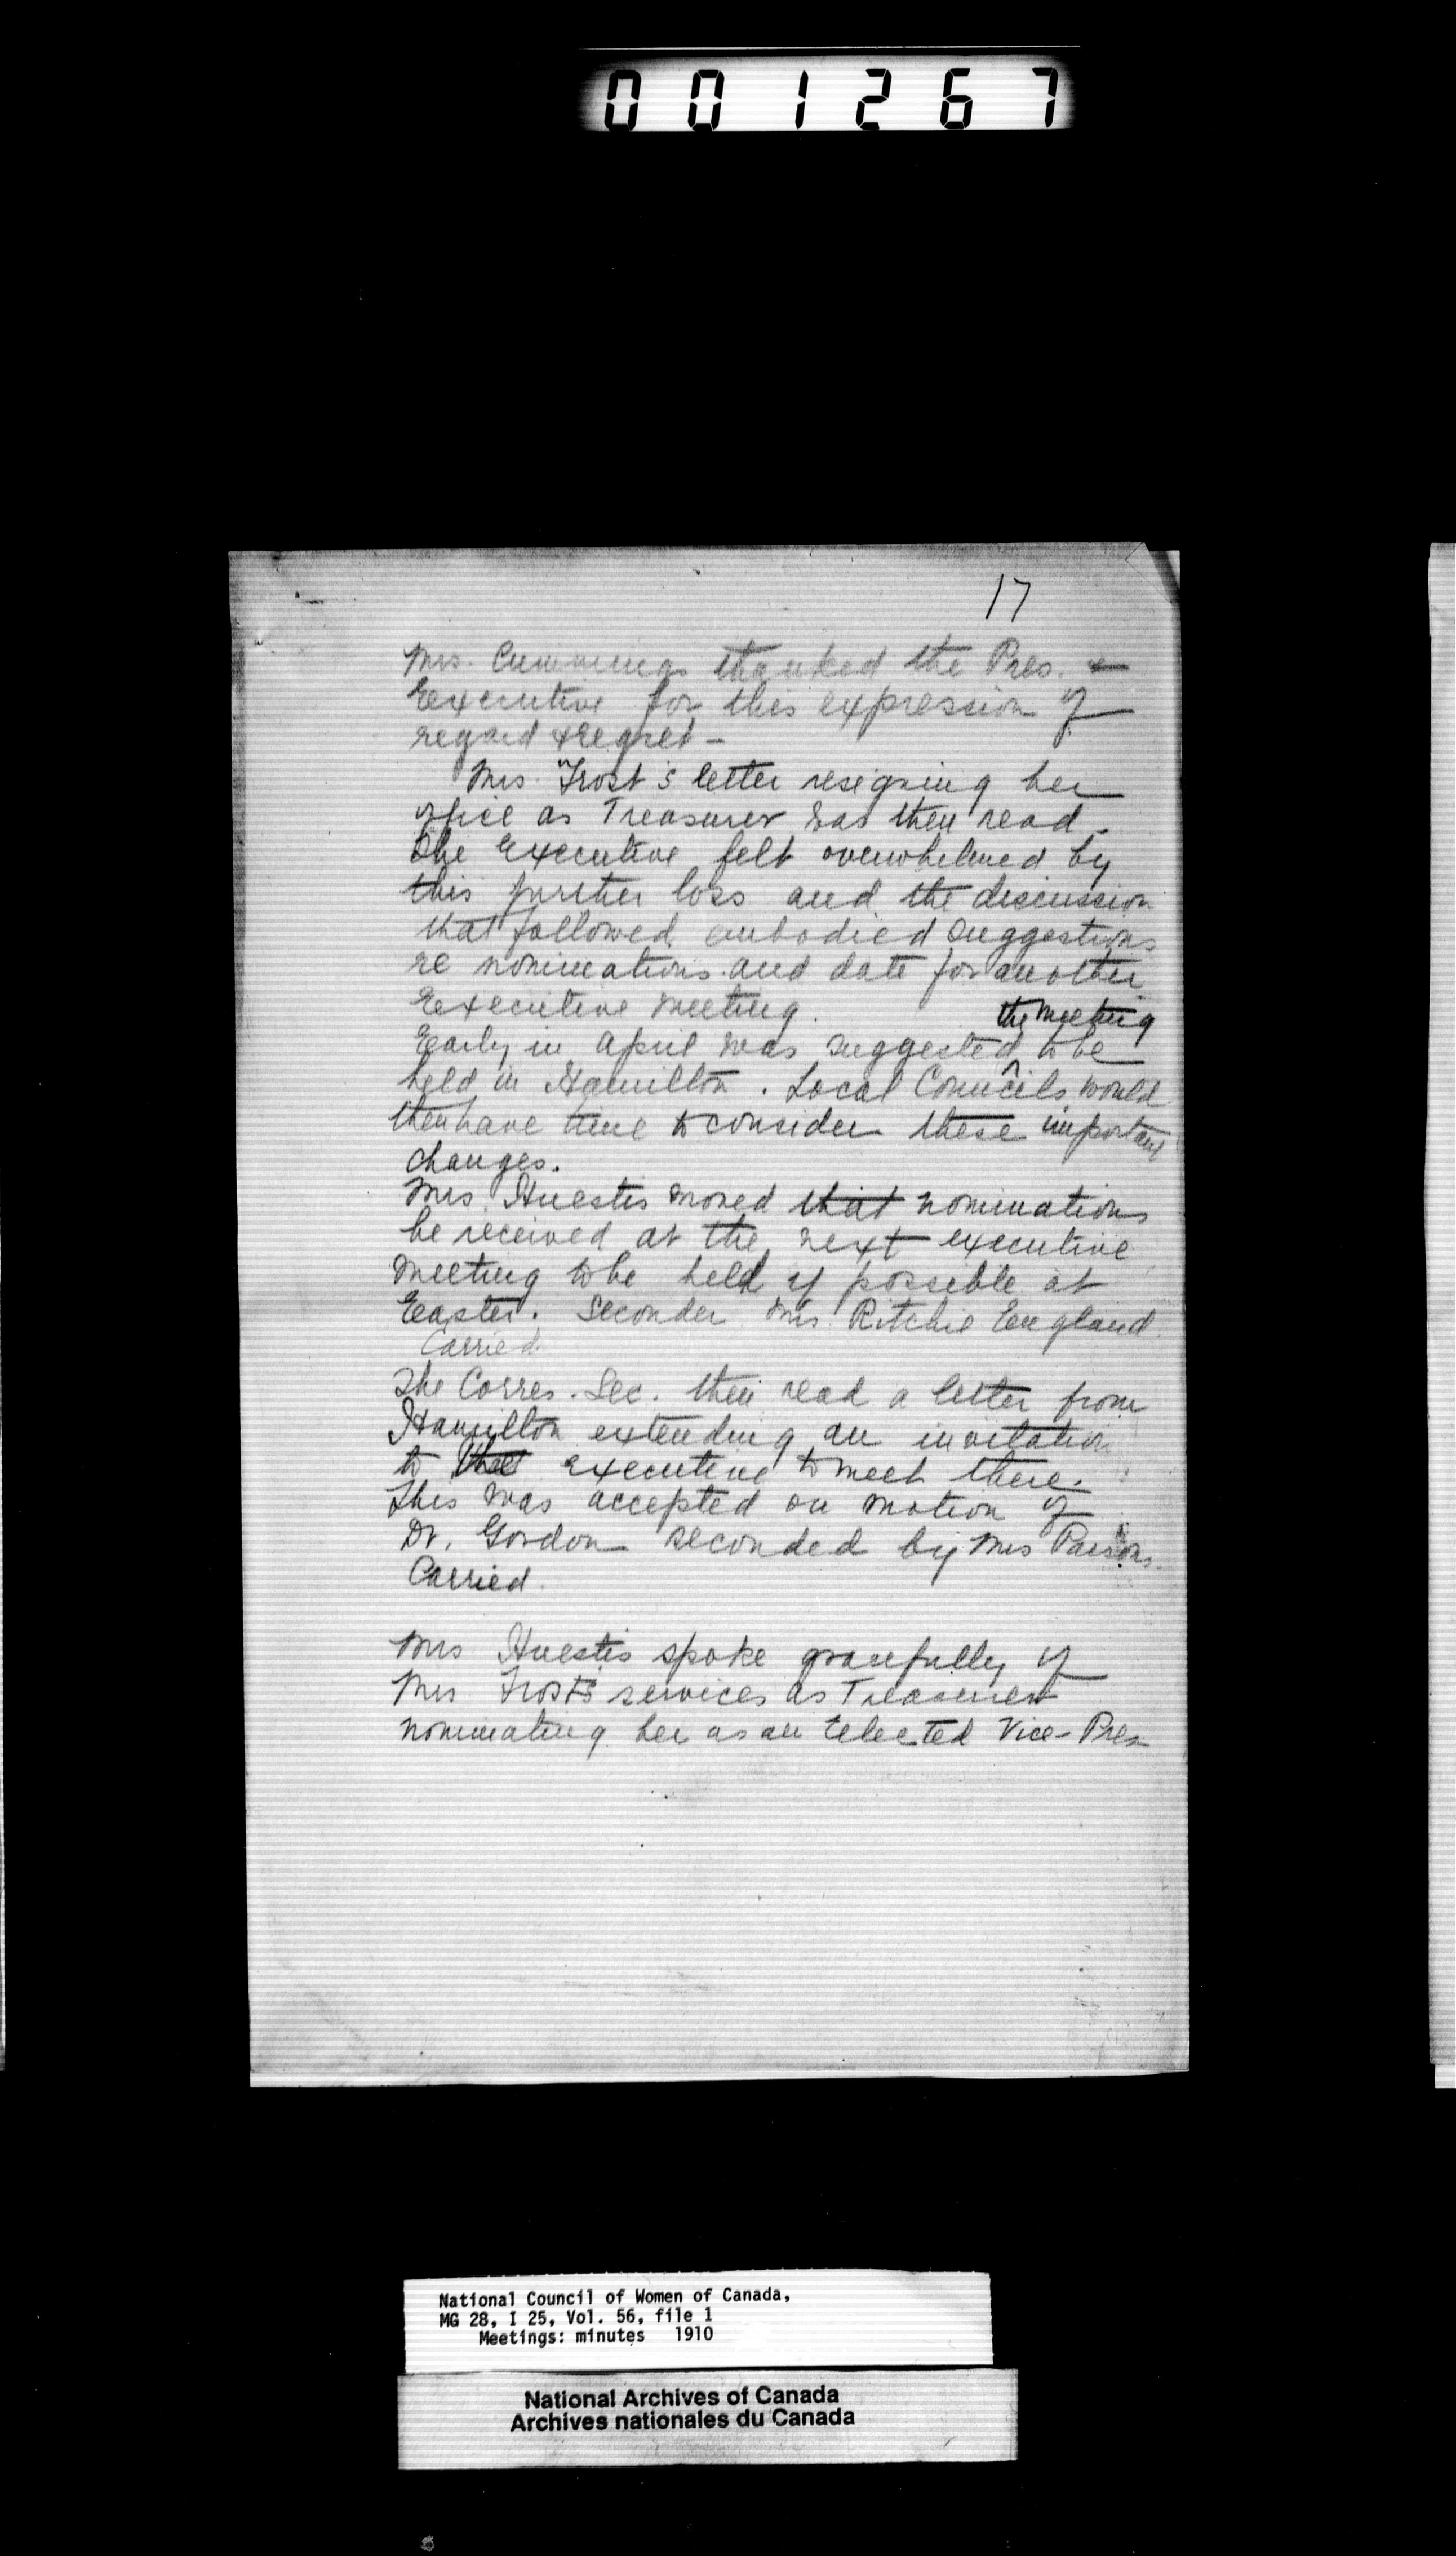 001267
17
Mrs. Cummings thanked the Pres. &
Executive for this expression of
regard & regret –
Mrs. Frost's letter resigning her
office as Treasurer was then read.
The Executive felt overwhelmed by
this further loss and the discussion
that followed embodied suggestions
re nominations and date for another
Executive meeting.
the meeting
Early in April was suggested ^ to be
held in Hamilton. Local Councils would
then have time to consider these important
changes.
Mrs. Huestis moved that nominations
be received at the next executive
meeting to be held if possible at
Easter. Seconder Mrs Ritchie England
Carried
The Corres. Sec. then read a letter from
Hamilton extending an invitation
to the executive to meet there.
This was accepted on motion of
Dr. Gordon seconded by Mrs Parsons.
Carried.
Mrs Huestis spoke gracefully of
Mrs Frost's services as Treasurer
nominating her as an Elected Vice-Pres
National Council of Women of Canada,
MG 28, I 25, Vol. 56, file 1
Meetings: minutes 1910
National Archives of Canada
Archives nationales du Canada